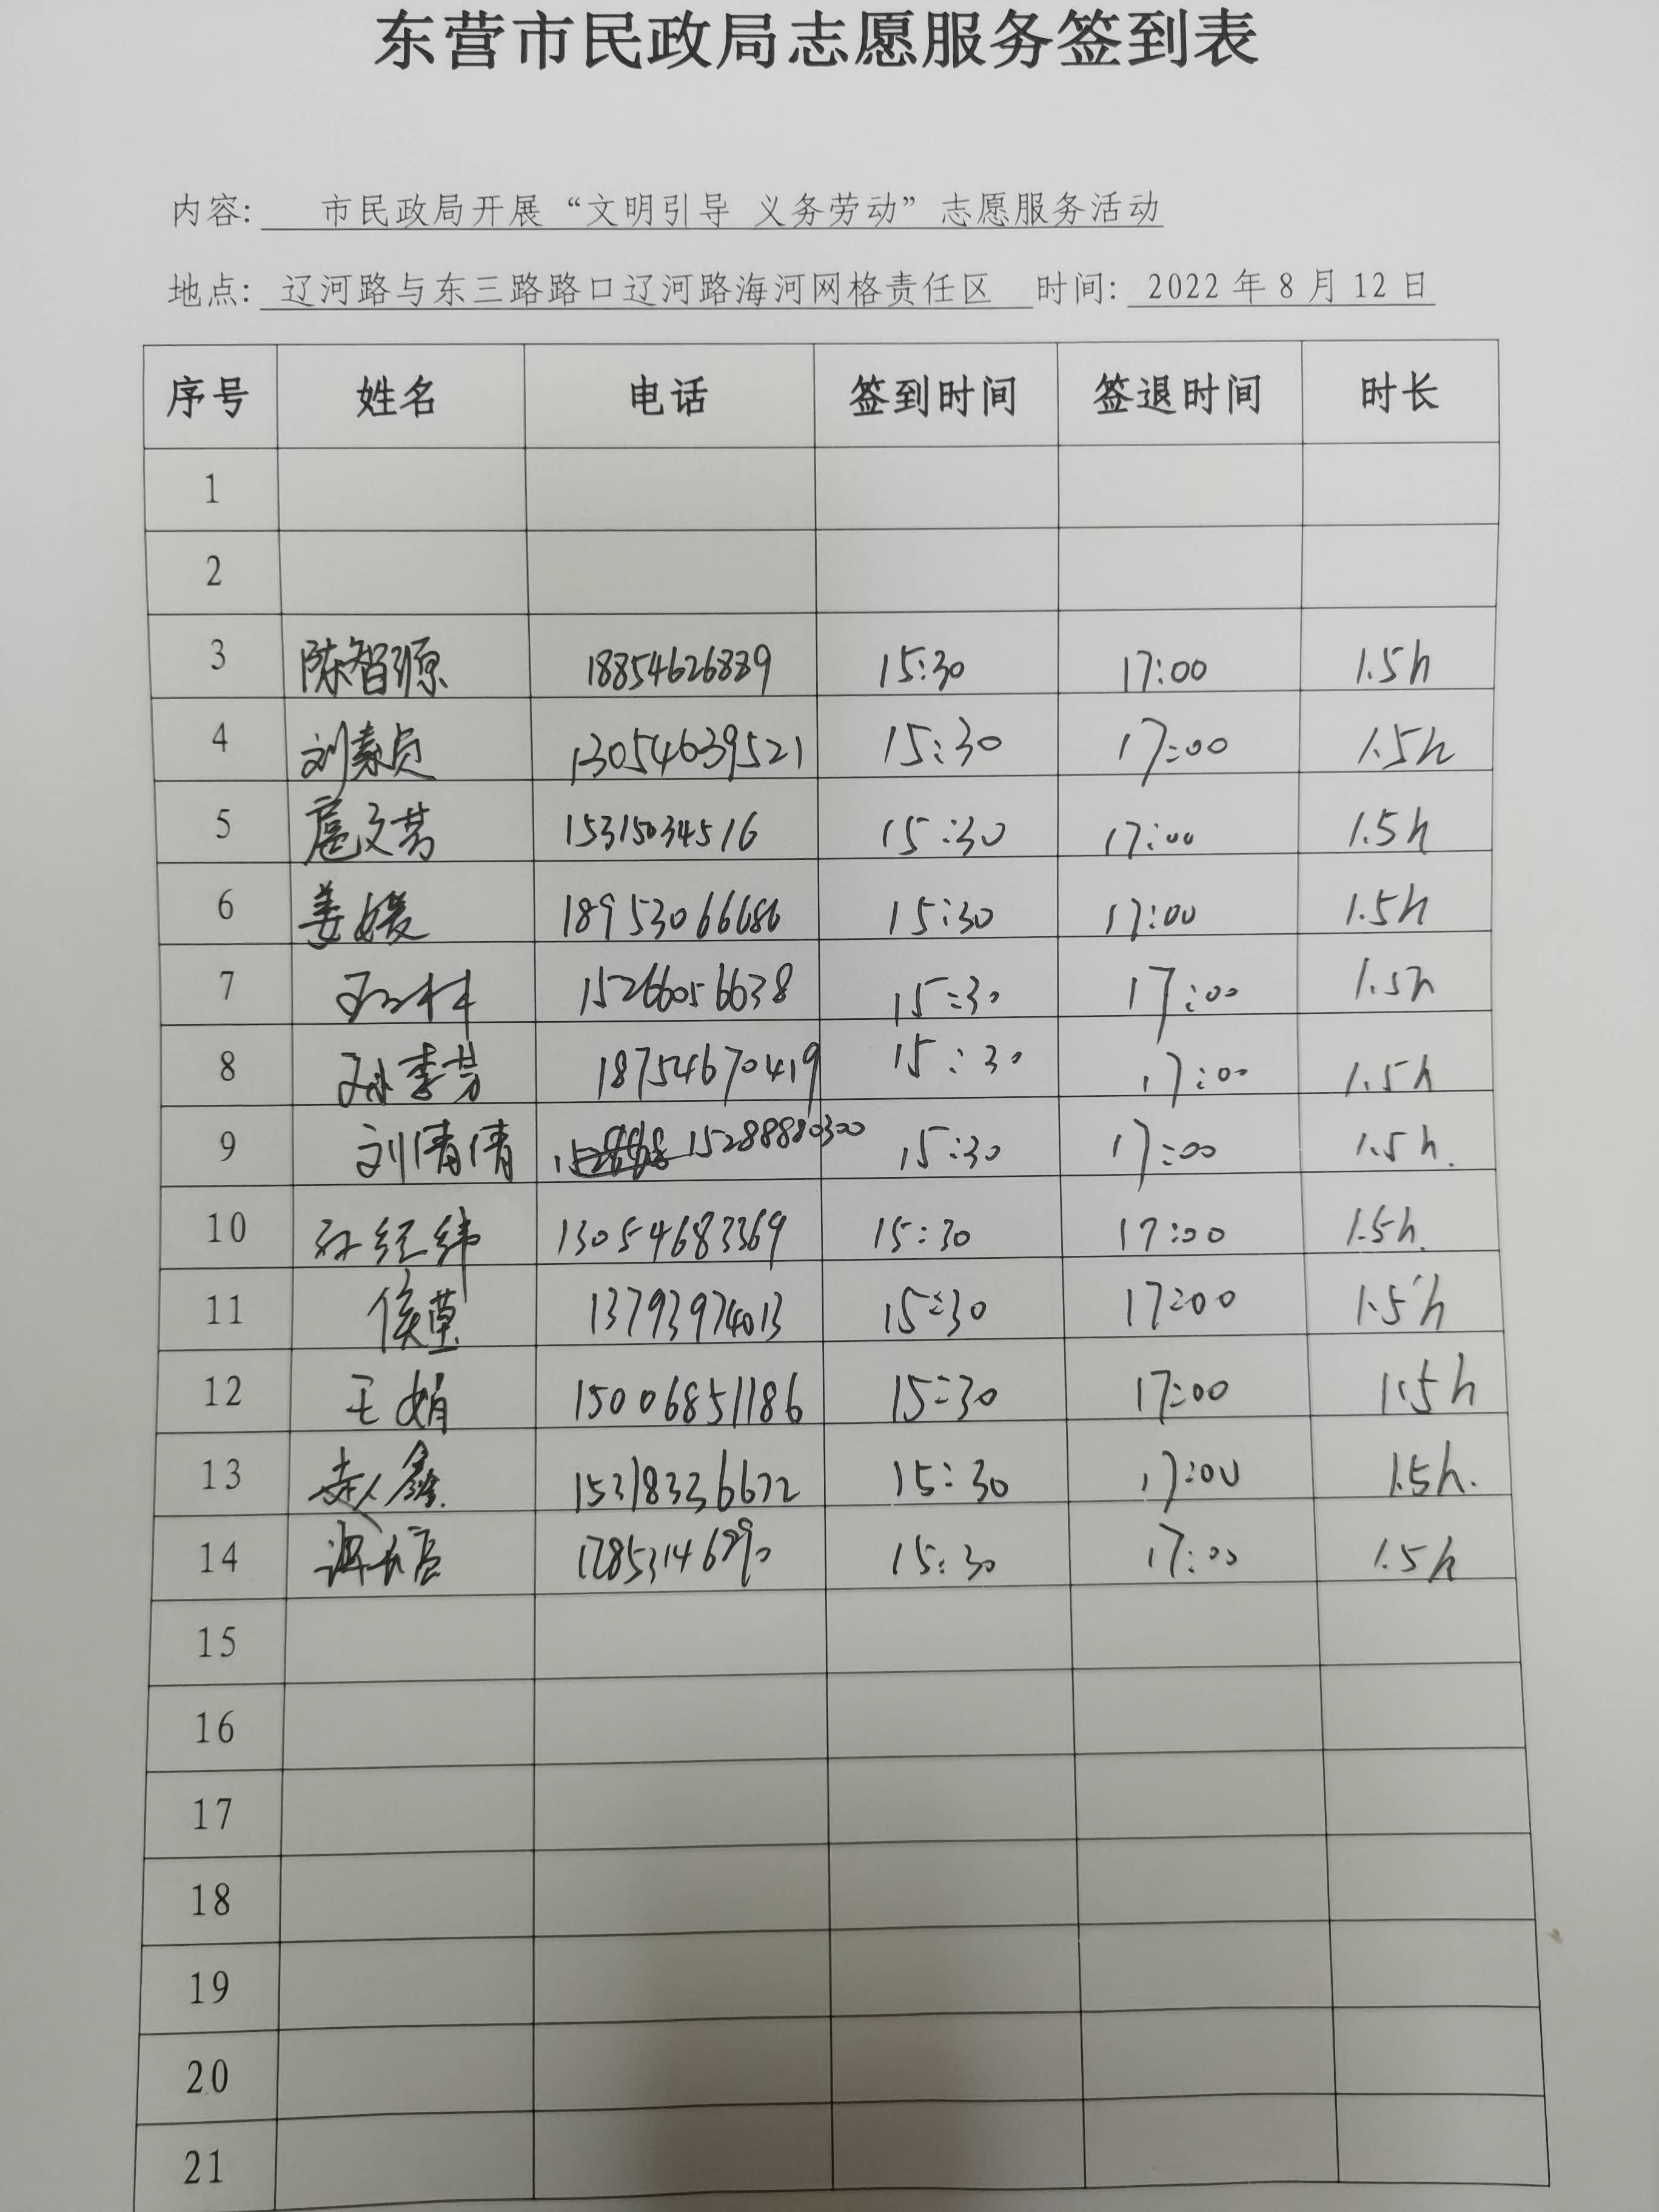 东营市民政局志愿服务签到表
内容: 市民政局开展“文明引导 义务劳动”志愿服务活动
地点: 辽河路与东三路路口辽河路海河网格责任区 时间: 2022年8月12日
序号 姓名 电话 签到时间 签退时间 时长
1
2
3 陈智源 18854626889 15:30 17:00 1.5h
4 刘素贞 13054639521 15:30 17:00 1.5h
5 扈文芳 15315034516 15:30 17:00 1.5h
6 姜媛 18953066686 15:30 17:00 1.5h
7 15266056638 15:30 17:00 1.5h
8 孙李芳 18754670419 15:30 17:00 1.5h
9 刘倩倩 15288880300 15:30 17:00 1.5h.
10 孙经纬 13054683369 15:30 17:00 1.5h.
11 侯莹 13793974013 15:30 17:00 1.5h
12 王娟 15006851186 15:30 17:00 1.5h
13 赵人鑫. 15318336672 15:30 17:00 1.5h.
14 15:30 17:00 1.5h
15
16
17
18
19
20
21